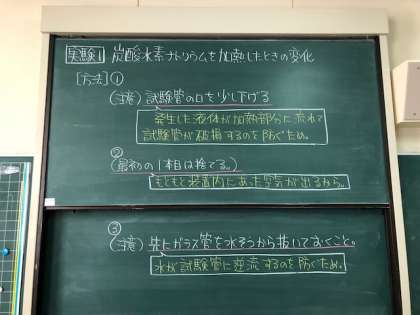 実験1 炭酸水素ナトリウムを加熱したときの変化
[方法]①
(注意) 試験管の口を少し下げる
発生した液体が加熱部分に流れて
試験管が破損するのを防ぐため。
②
(最初の1本目は捨てる。)
もともと装置内にあった空気が出るから。
③
(注意) 先にガラス管を水そうから抜いておくこと。
水が試験管に逆流するのを防ぐため。